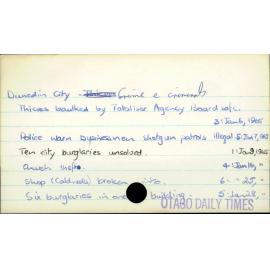 Dunedin City - Thieves Crime & criminals
Thieves baulked by Totalizor Agency Board safe.
3: Jan 6, 1965
Police warn businessmen shotgun patrols illegal. 5: Jan 7, 1965
Ten city burglaries unsolved. 1: Jan 9, 1965
Church thefts. 4: Jan 14, "
Shop (Caldwells) broken into. 6: " 25, "
Six burglaries in one building. 5: Jan 28, "
OTAGO DAILY TIMES